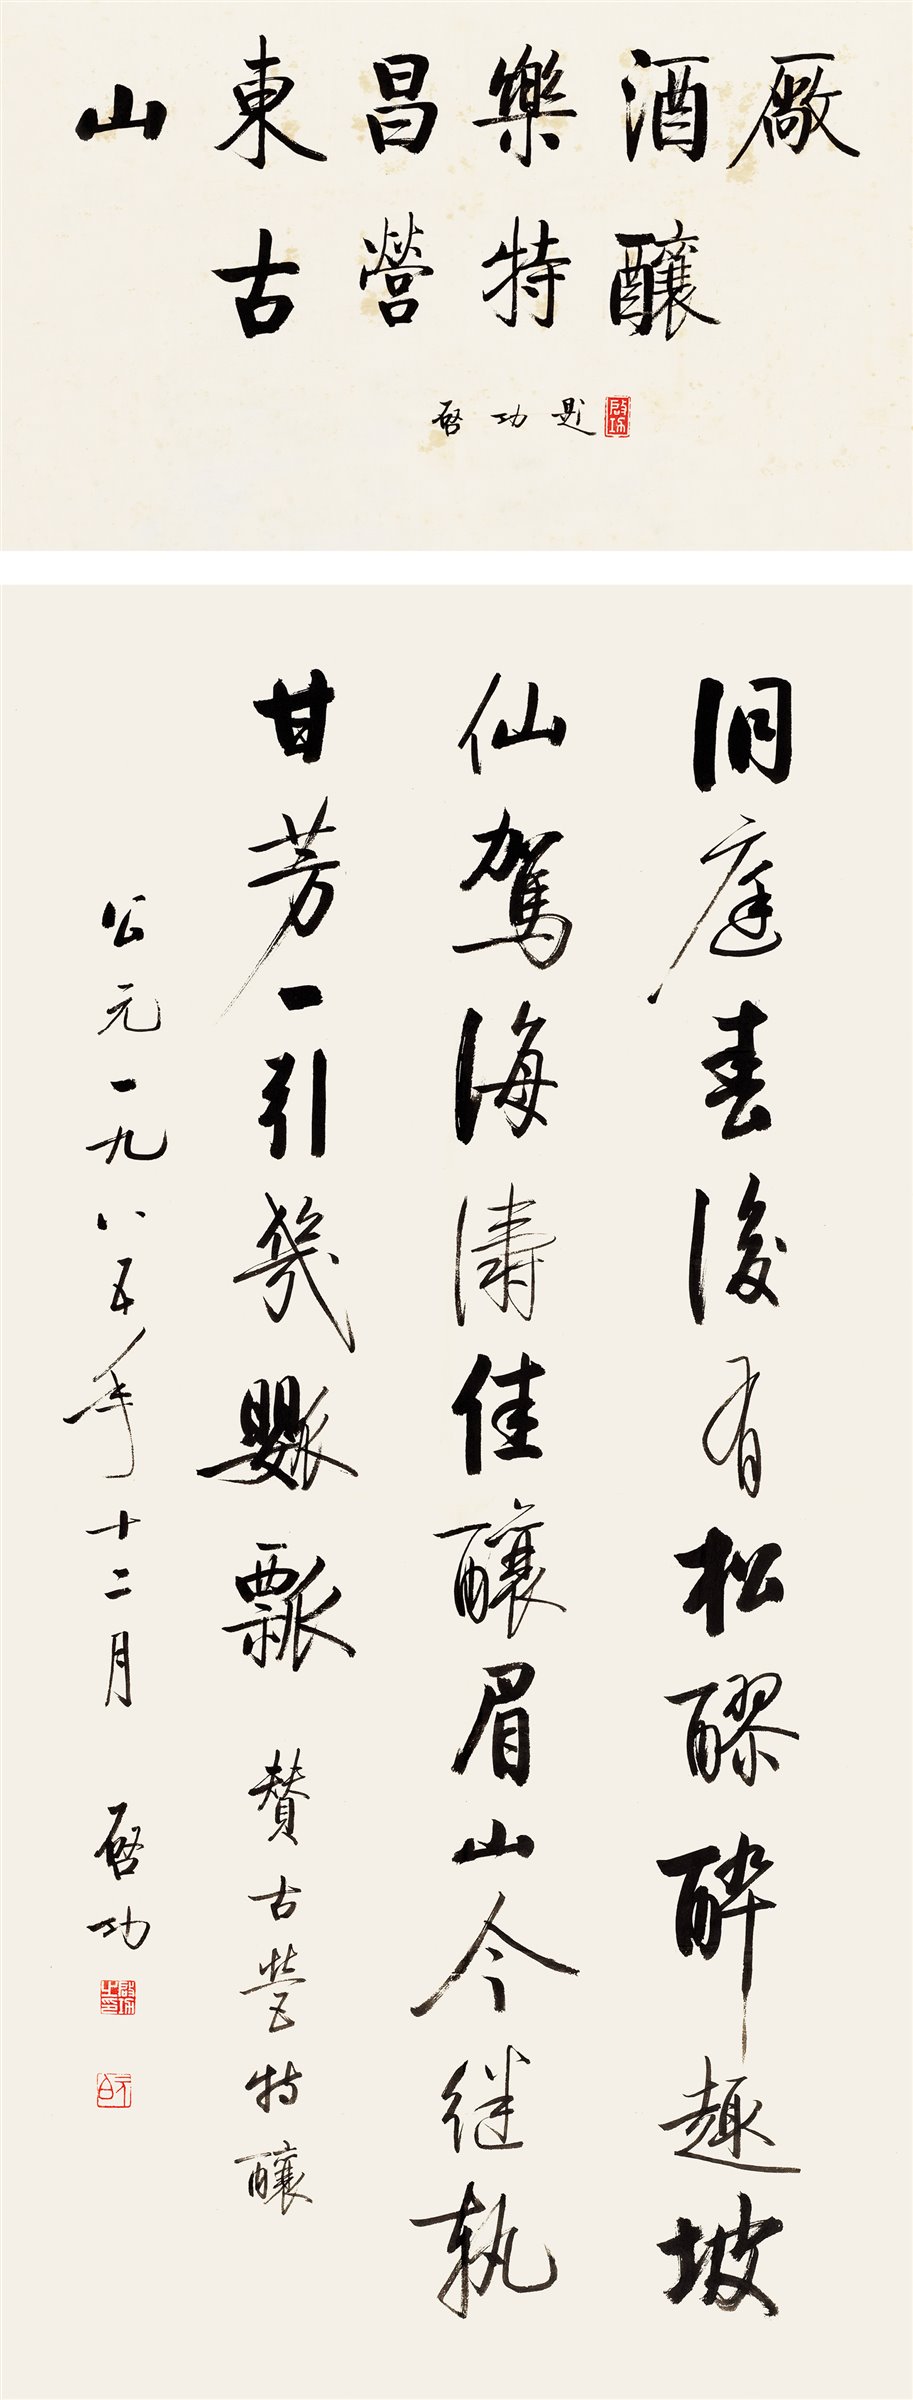 山東昌樂酒廠
古營特釀
啓功題
啓功
洞庭春後有松醪醉趣坡
仙駕海濤佳釀眉山今继執
甘芳一引幾𤬏瓢 赞古营特釀
公元一九八五年十二月 启功
啓功之印